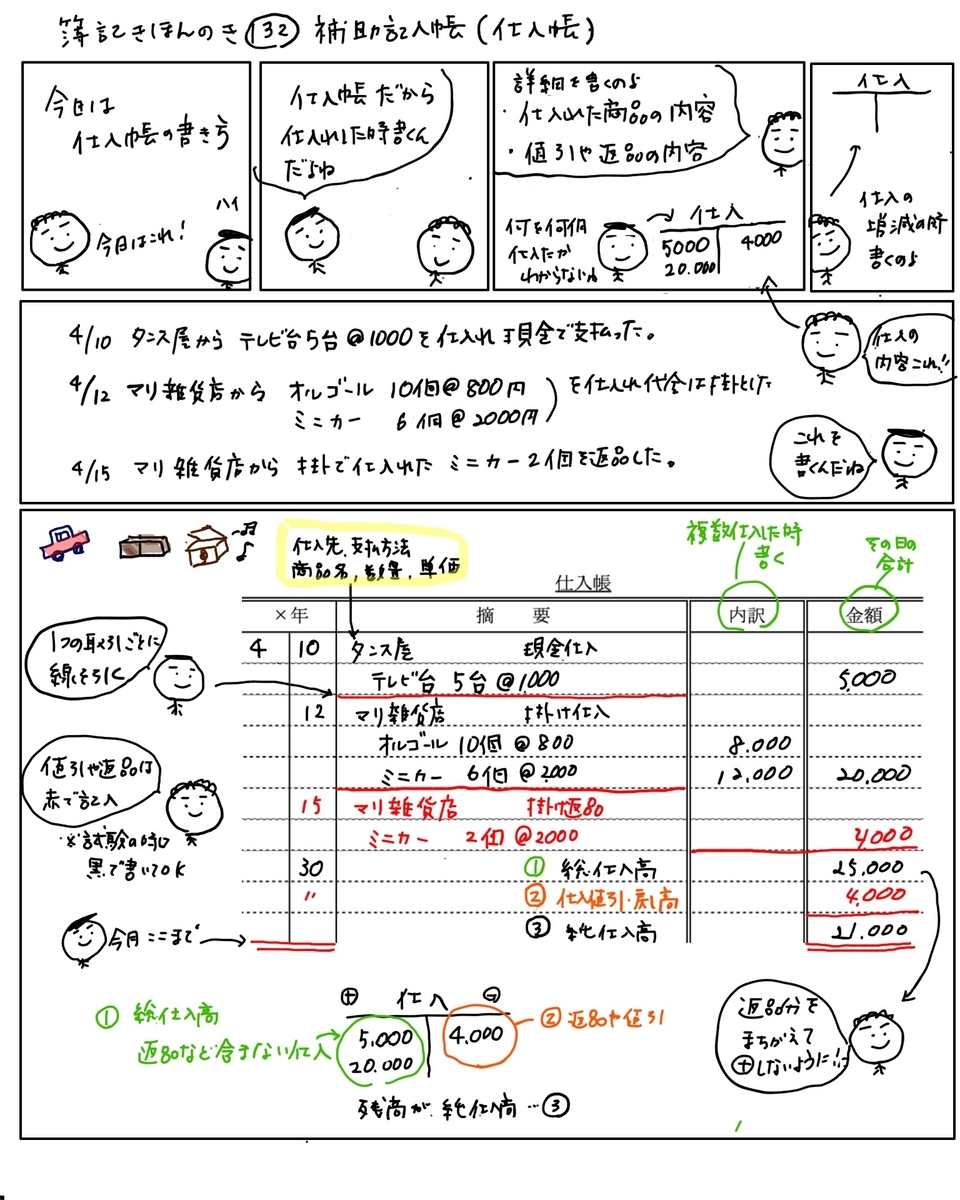 簿記きほんのき 132 補助記入帳(仕入帳)
今日は
仕入帳の書き方
今日はこれ!
ハイ
仕入帳だから
仕入れした時書くん
だよね
詳細を書くのよ
・仕入れた商品の内容
・値引や返品の内容
何を何個
仕入たか
わからないね
仕入
5000 4000
20.000
仕入
仕入の
増減の時
書くのよ
4/10 タンス屋から テレビ台5台@1000を仕入れ現金で支払った。
4/12 マリ雑貨店から オルゴール 10個@800円
ミニカー 6個@2000円
を仕入れ代金は掛とした
4/15 マリ雑貨店から 掛で仕入れた ミニカー2個を返品した。
仕入の
内容これ!!
これを
書くんだね
仕入先、支払方法
商品名、数量、単価
複数仕入した時
書く
その日の
合計
仕入帳
×年 摘要 内訳 金額
1つの取引ごとに
線を引く
4 10 タンス屋 現金仕入
テレビ台 5台@1,000 5,000
12 マリ雑貨店 掛け仕入
オルゴール 10個@800 8.000
ミニカー 6個@2,000 12,000 20,000
値引や返品は
赤で記入
※試験の時は
黒で書いてOK
15 マリ雑貨店 掛け返品
ミニカー 2個@2000 4,000
30 ① 総仕入高 25.000
〃 ② 仕入値引・戻し高 4.000
③ 純仕入高 21.000
今月ここまで
① 総仕入高
返品など含まない仕入
⊕ 仕入 ⊖
5,000 4.000
20.000
②返品や値引
残高が純仕入高…③
返品分を
まちがえて
⊕しないように!!